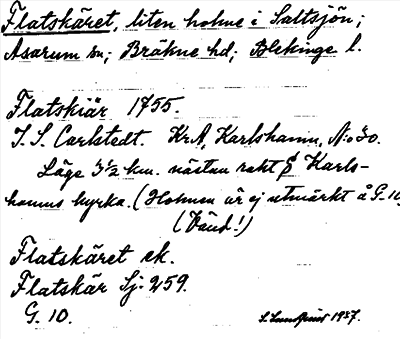 Flatskäret, liten holme i Saltsjön;
Asarum sn; Bräkne hd; Blekinge l.
Flatskiär 1755.
J. S. Carlstedt. KrA, Karlshamn, N:o 30.
Läge 3½ km. nästan rakt S Karls-
hamns kyrka. (Holmen är ej utmärkt å G-10)
(Vänd!)
Flatskäret ek.
Flatskär Sj: 259.
G. 10.
1937.